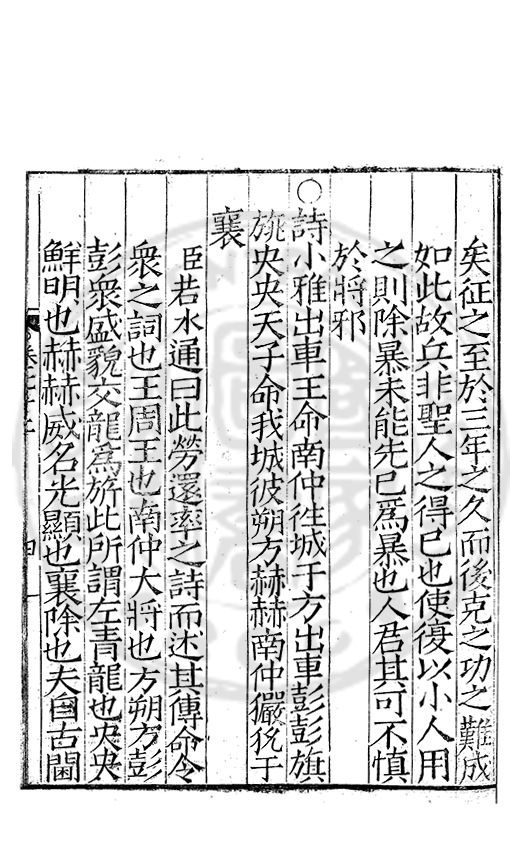 矣征之至於三年之久而後克之功之難成
如此故兵非聖人之得已也使復以小人用
之則除暴未能先已爲暴也人君其可不慎
於將邪
○詩小雅出車王命南仲往城于方出車彭彭旗
旐央央天子命我城彼朔方赫赫南仲玁狁于
襄
臣若水通曰此勞還率之詩而述其傳命令
衆之詞也王周王也南仲大將也方朔方彭
彭衆盛貌交龍爲旂此所謂左青龍也央央
鮮明也赫赫威名光顯也襄除也夫自古閫